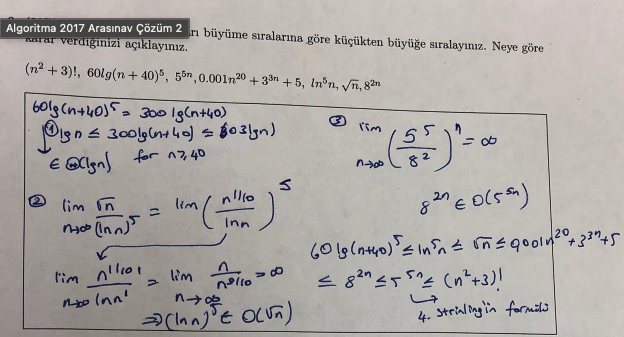 Algoritma 2017 Arasınav Çözüm 2
büyüme sıralarına göre küçükten büyüğe sıralayınız. Neye göre
karar verdiğinizi açıklayınız.
(n² + 3)!, 60lg(n + 40)⁵, 5⁵ⁿ, 0.001n²⁰ + 3³ⁿ + 5, ln⁵n, √n, 8²ⁿ
60lg(n+40)⁵ = 300 lg(n+40)
① lgn ≤ 300lg(n+40) ≤ 301lgn)
∈ Θ(lgn) for n≥40
② lim n→∞ √n / (ln n)⁵ = lim (n^(1/10) / ln n)⁵
lim n→∞ n^(1/10)' / ln n' = lim n→∞ n / n^(9/10) = ∞
⇒ (ln n)⁵ ∈ O(√n)
③ lim n→∞ (5⁵ / 8²)ⁿ = ∞
8²ⁿ ∈ O(5⁵ⁿ)
60 lg(n+40)⁵ ≤ ln⁵n ≤ √n ≤ 0.001n²⁰ + 3³ⁿ + 5
≤ 8²ⁿ ≤ 5⁵ⁿ ≤ (n²+3)!
4. strirling'in formülü